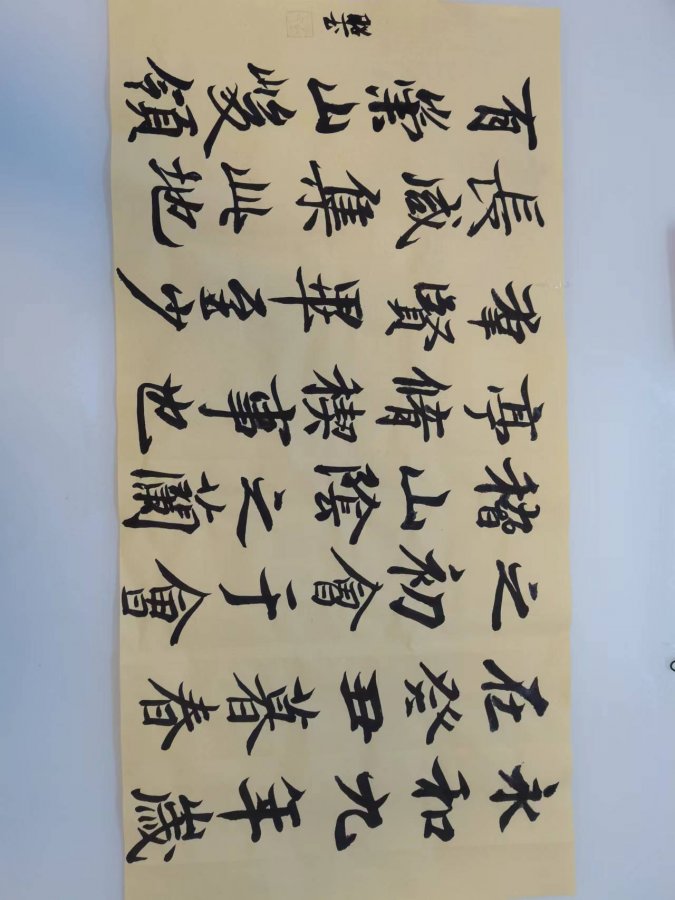 永和九年歲
在癸丑暮春
之初會于會
稽山陰之蘭
亭脩禊事也
羣賢畢至少
長咸集此地
有崇山峻領